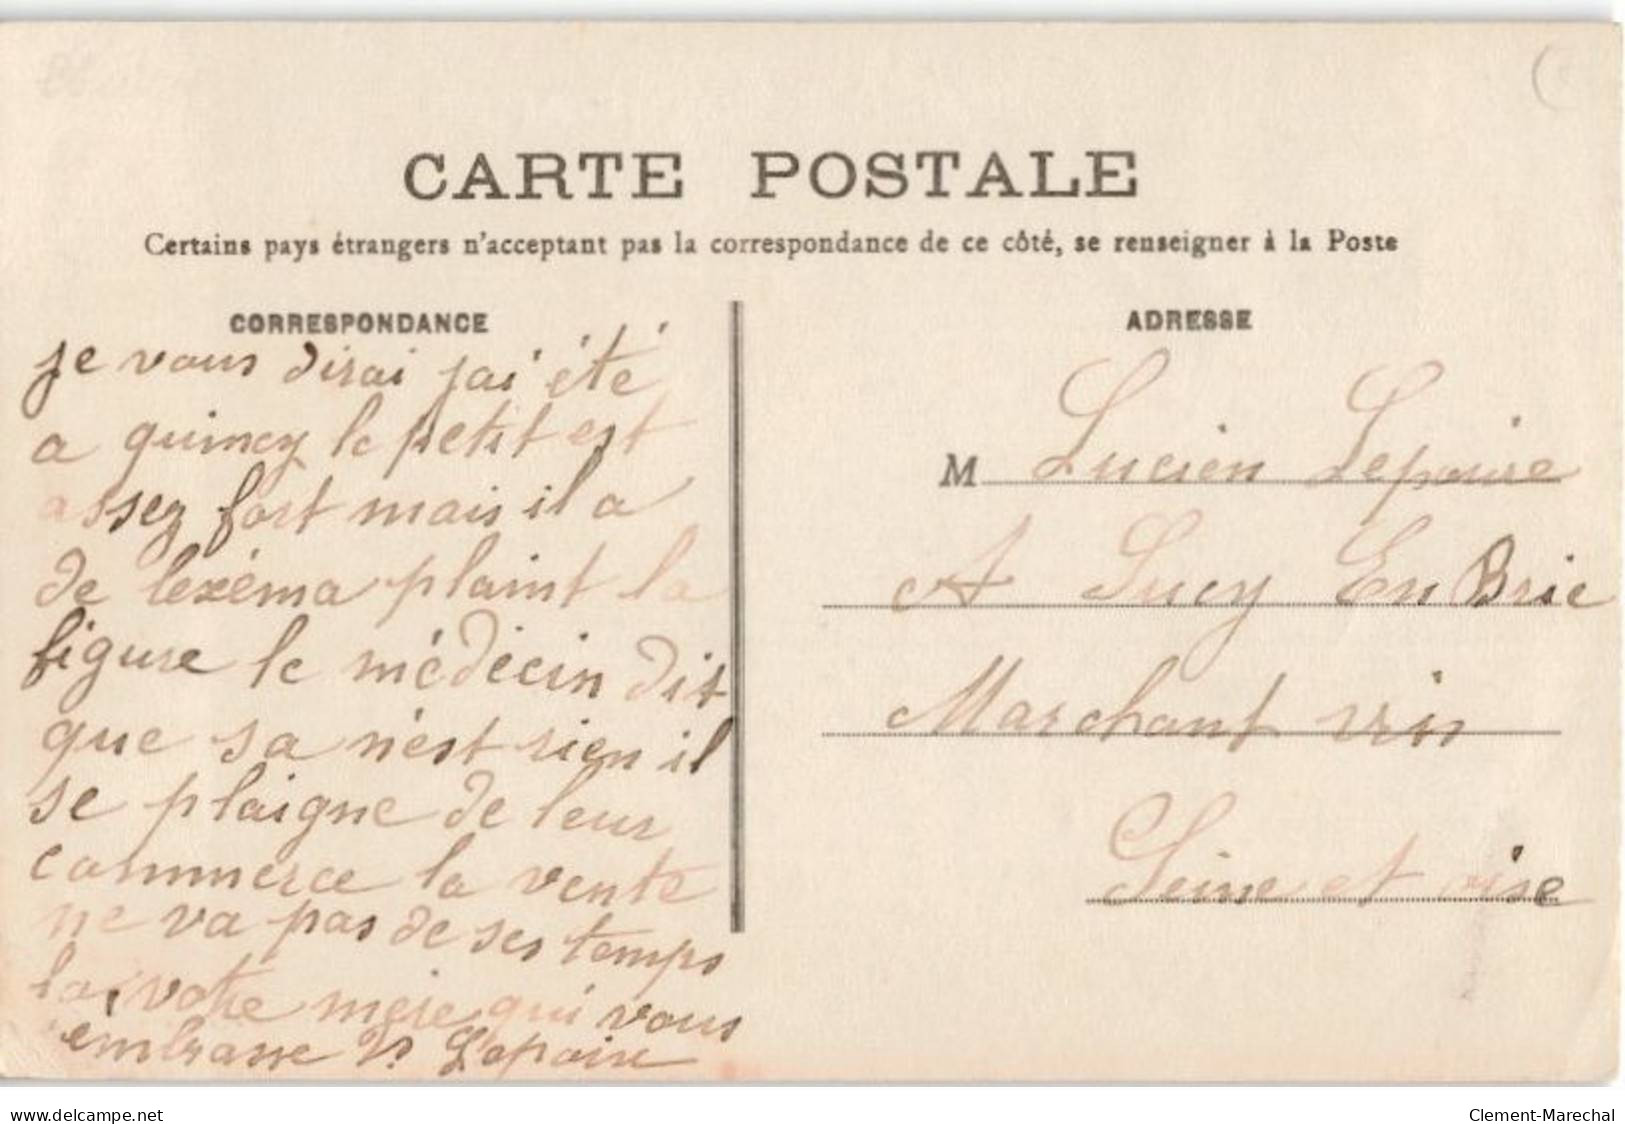 CARTE POSTALE
Certains pays étrangers n'acceptant pas la correspondance de ce côté, se renseigner à la Poste
CORRESPONDANCE
je vous dirai jai été
a quincy le petit est
assez fort mais il a
de lexéma plaint la
figure le médecin dit
que sa n'est rien il
se plaigne de leur
commerce la vente
ne va pas de ses temps
la votre mere qui vous
embrasse Lepoire
ADRESSE
M Lucien Lepoire
A Sucy En Brie
Marchant vin
Seine et oise
www.delcampe.net
Clement-Marechal